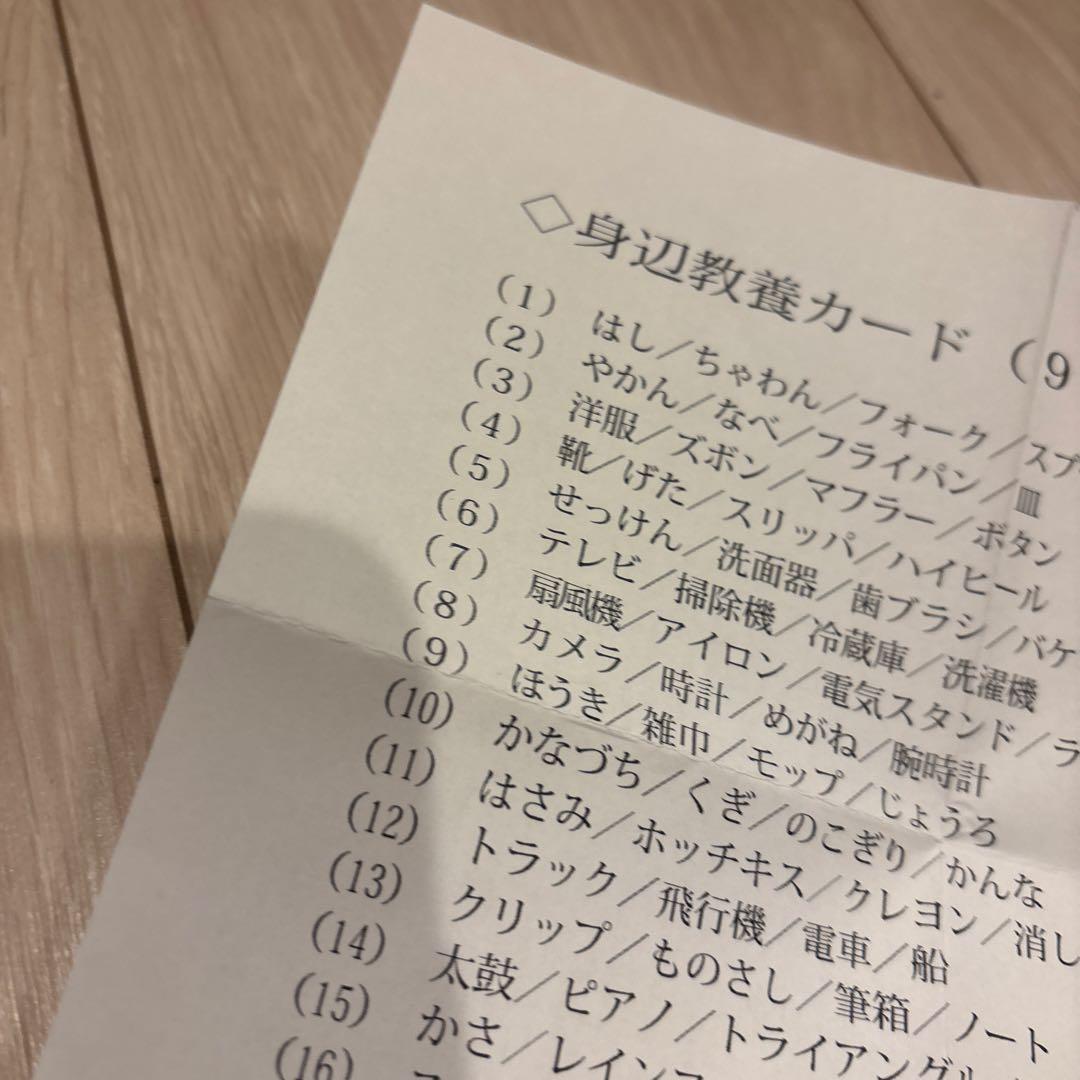 ◇身辺教養カード（9
(1) はし／ちゃわん／フォーク／スプ
(2) やかん／なべ／フライパン／皿
(3) 洋服／ズボン／マフラー／ボタン
(4) 靴／げた／スリッパ／ハイヒール
(5) せっけん／洗面器／歯ブラシ／バケ
(6) テレビ／掃除機／冷蔵庫／洗濯機
(7) 扇風機／アイロン／電気スタンド／ラ
(8) カメラ／時計／めがね／腕時計
(9) ほうき／雑巾／モップ／じょうろ
(10) かなづち／くぎ／のこぎり／かんな
(11) はさみ／ホッチキス／クレヨン／消し
(12) トラック／飛行機／電車／船
(13) クリップ／ものさし／筆箱／ノート
(14) 太鼓／ピアノ／トライアングル
(15) かさ／レイン
(16)